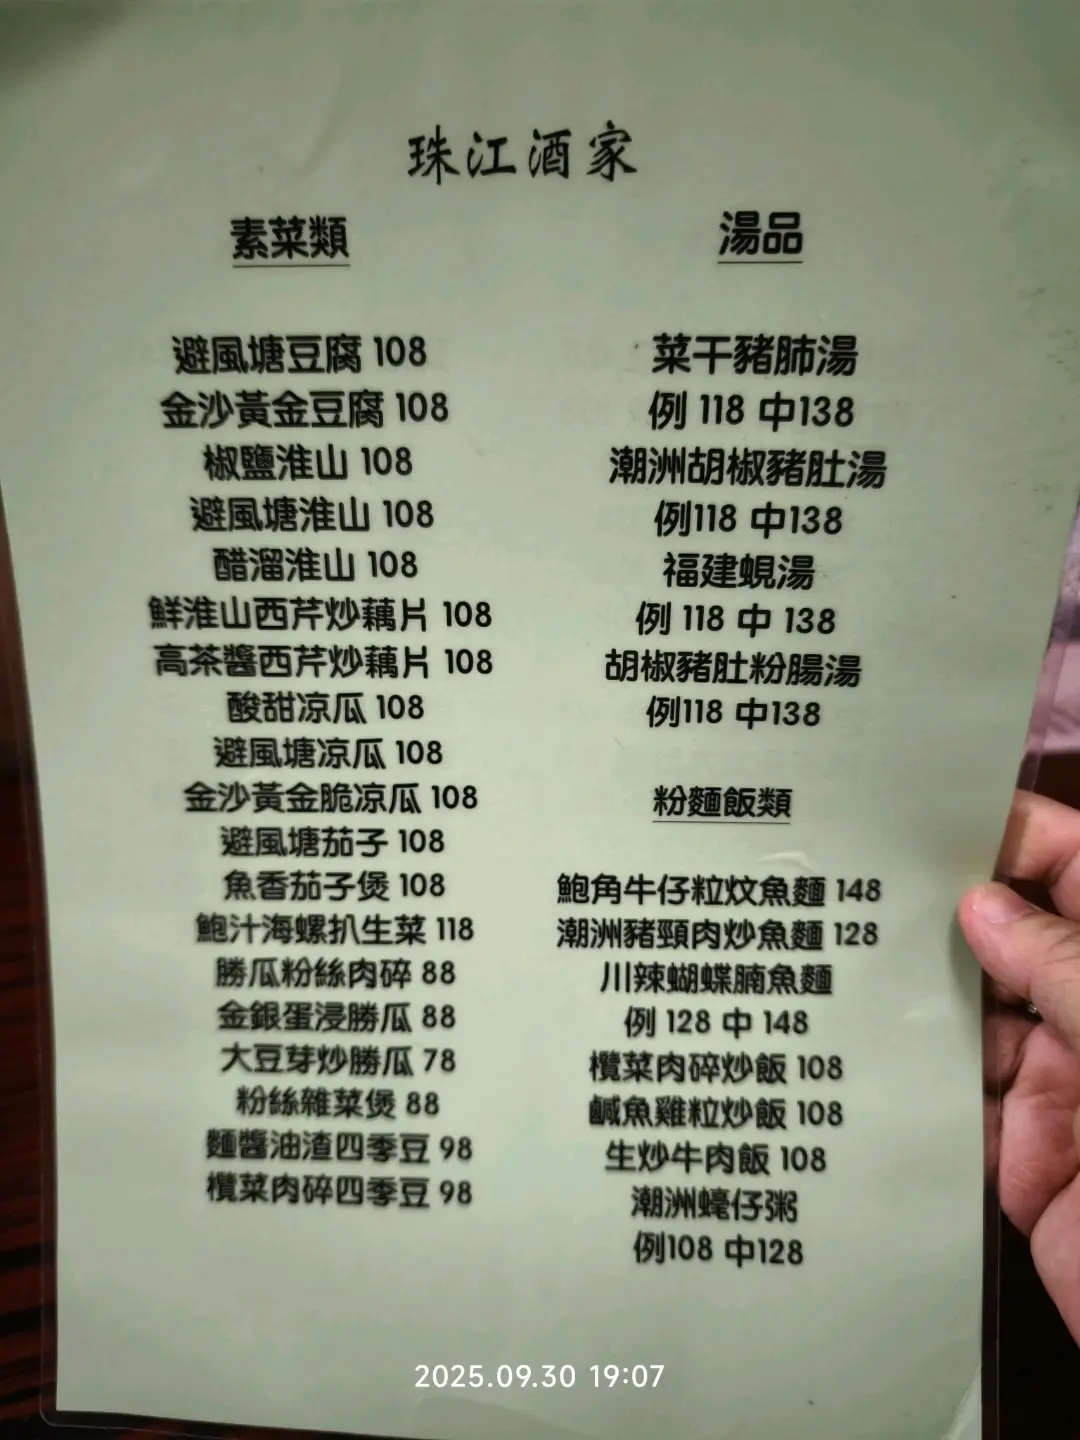 珠江酒家
素菜類
避風塘豆腐 108
金沙黃金豆腐 108
椒鹽淮山 108
避風塘淮山 108
醋溜淮山 108
鮮淮山西芹炒藕片 108
高茶醬西芹炒藕片 108
酸甜凉瓜 108
避風塘凉瓜 108
金沙黃金脆凉瓜 108
避風塘茄子 108
魚香茄子煲 108
鮑汁海螺扒生菜 118
勝瓜粉絲肉碎 88
金銀蛋浸勝瓜 88
大豆芽炒勝瓜 78
粉絲雜菜煲 88
麵醬油渣四季豆 98
欖菜肉碎四季豆 98
湯品
菜干豬肺湯
例 118 中138
潮洲胡椒豬肚湯
例118 中138
福建蜆湯
例 118 中 138
胡椒豬肚粉腸湯
例118 中138
粉麵飯類
鮑角牛仔粒炆魚麵 148
潮洲豬頸肉炒魚麵 128
川辣蝴蝶腩魚麵
例 128 中 148
欖菜肉碎炒飯 108
鹹魚雞粒炒飯 108
生炒牛肉飯 108
潮洲蠔仔粥
例108 中128
2025.09.30 19:07